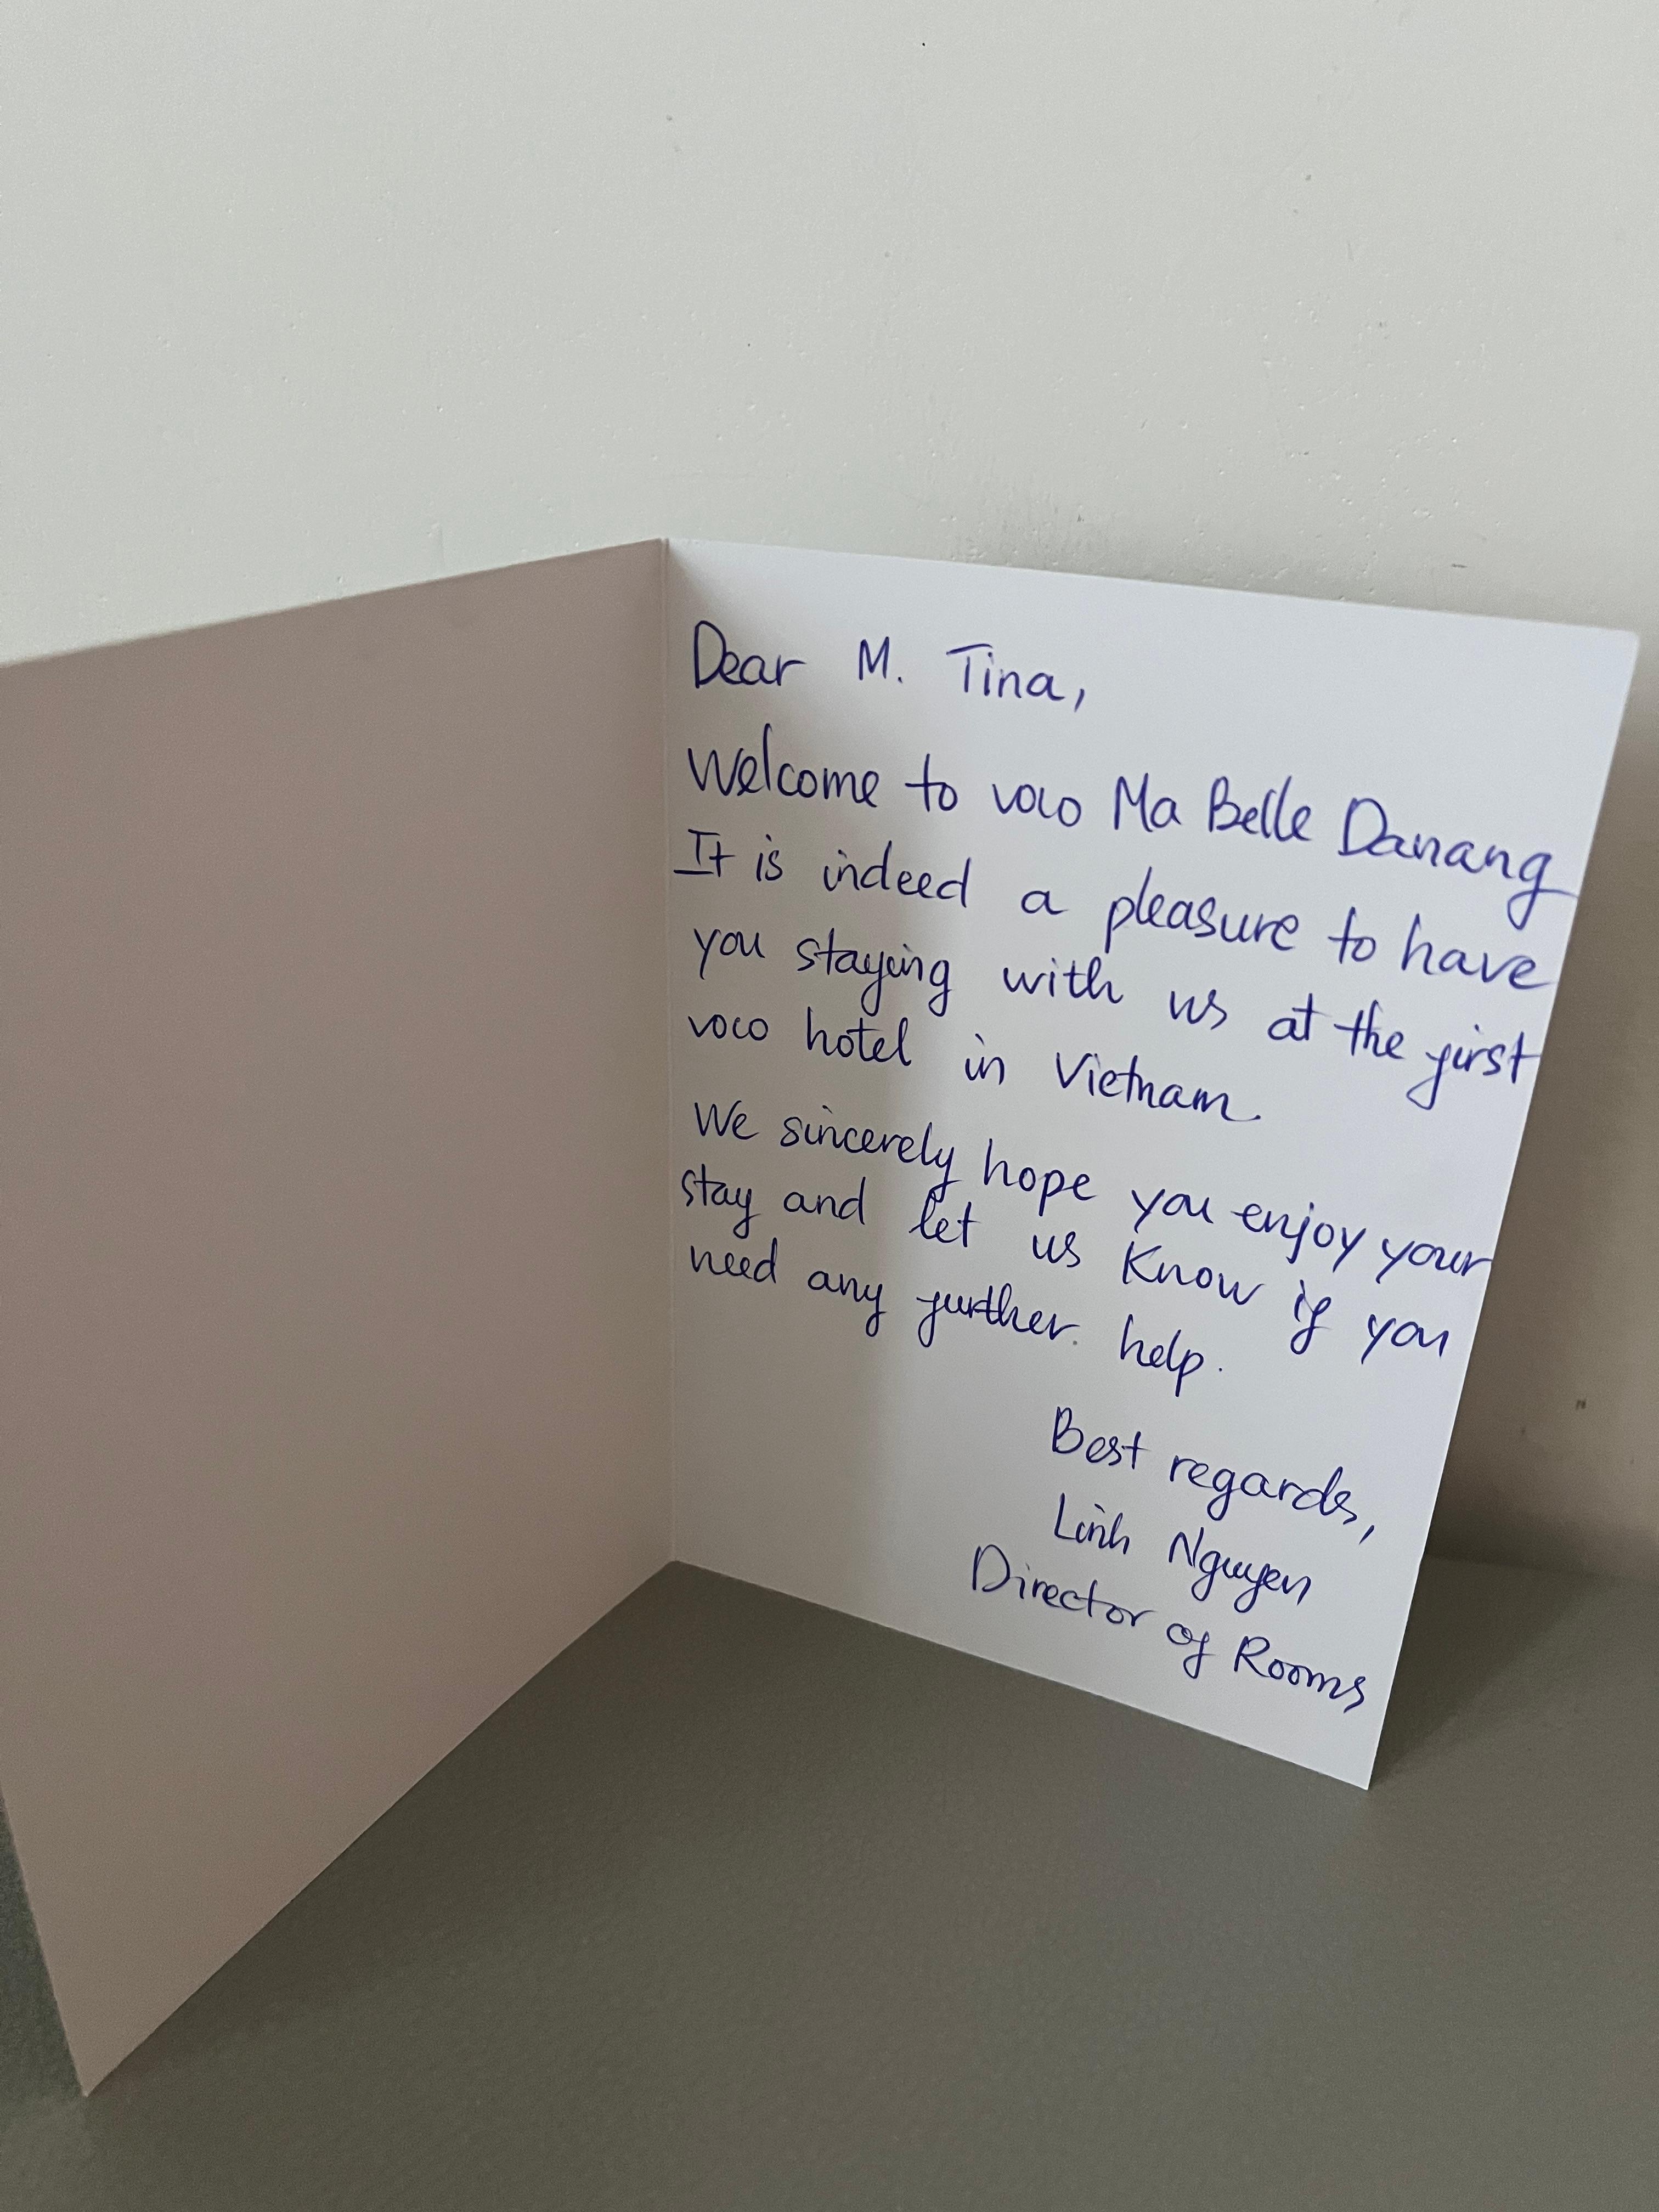 Dear M. Tina,
Welcome to voco Ma Belle Danang
It is indeed a pleasure to have
you staying with us at the first
voco hotel in Vietnam.
We sincerely hope you enjoy your
stay and let us know if you
need any further. help.
Best regards,
Linh Nguyen
Director of Rooms